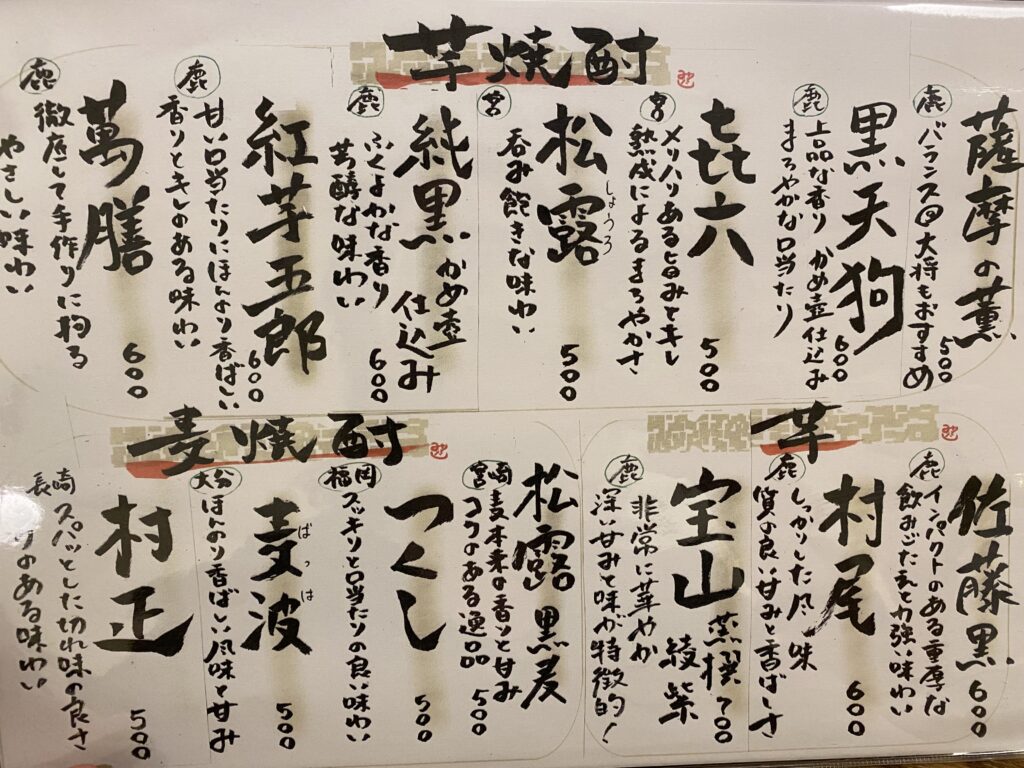 芋焼酎
薩摩の薫
鹿
バランス◎大将もおすすめ
500
黒天狗
鹿
上品な香り かめ壺仕込み
まろやかな口当たり
600
㐂六
宮
メリハリある旨みとキレ
熟成によるまろやかさ
500
松露
しょうろ
宮
呑み飽きな味わい
500
純黒 かめ壺
仕込み
鹿
ふくよかな香り
芳醇な味わい
600
紅芋五郎
鹿
甘い口当たりにほんより香ばしい
香りとキレのある味わい
600
萬膳
鹿
徹底して手作りに拘る
やさしい味わい
600
芋
佐藤黒
鹿
インパクトのある重厚な
飲みごたえと力強い味わい
600
村尾
鹿
しっかりした風味
質の良い甘みと香ばしさ
600
宝山 蒸撰
綾紫
鹿
非常に華やか
深い甘みと味が特徴的!
700
麦焼酎
松露 黒麦
宮崎
麦本来の香りと甘み
コクのある逸品
500
つくし
福岡
スッキリと口当たりの良い味わい
500
麦波
ばっは
大分
ほんのり香ばしい風味と甘み
500
村正
長崎
スパッとした切れ味の良さ
のある味わい
500